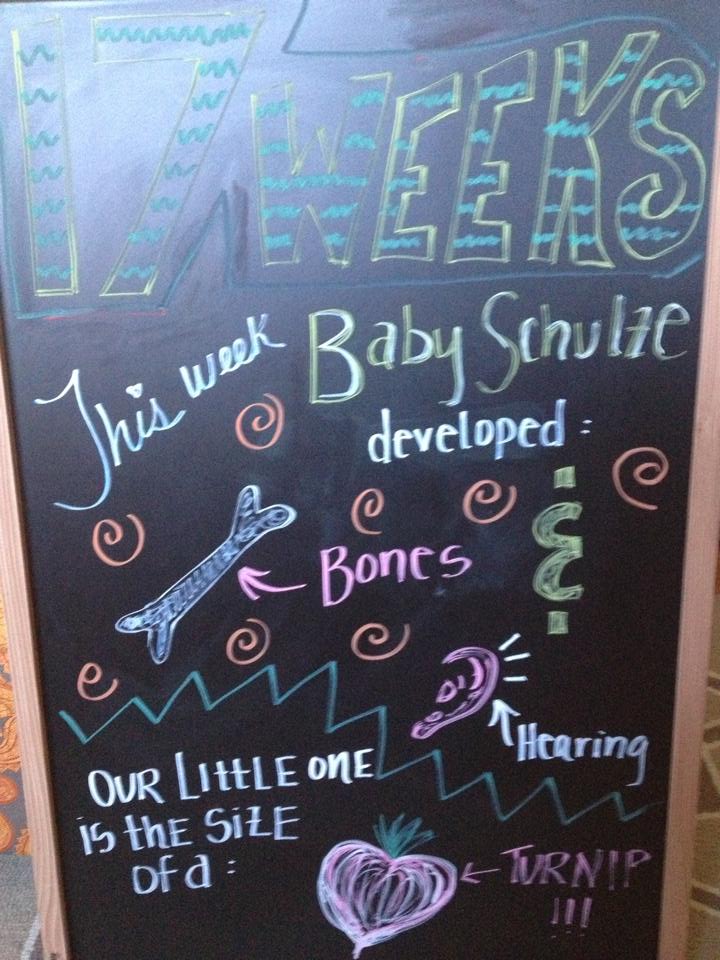 17 WEEKS
This week Baby Schulze
developed:
Bones
&
Hearing
OUR LittLE oNE
is thE SiZE
of a:
TURNIP
!!!